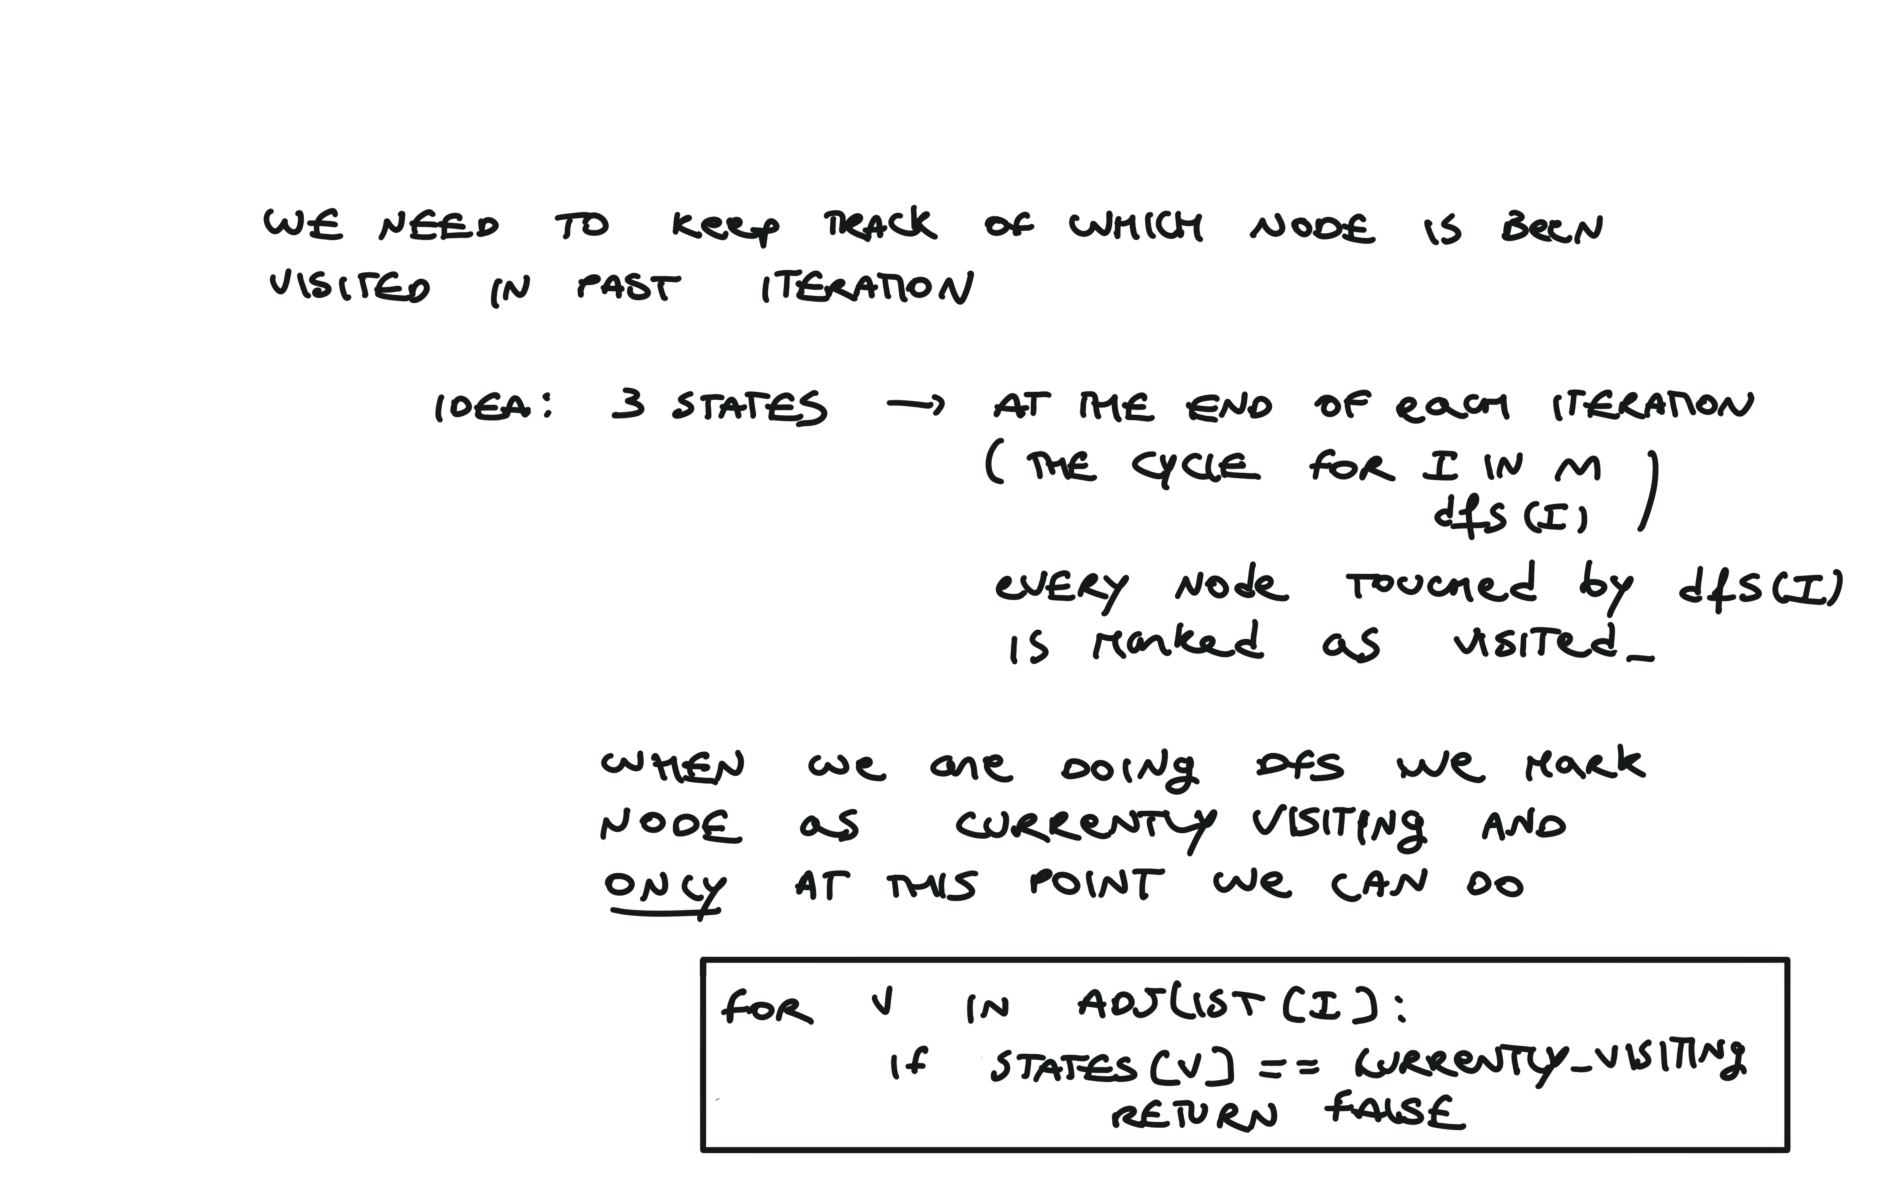 WE NEED TO KEEP TRACK OF WHICH NODE IS BEEN
VISITED IN PAST ITERATION
IDEA: 3 STATES → AT THE END OF EACH ITERATION
(THE CYCLE FOR I IN M
dfs(I))
EVERY NODE TOUCHED by dfs(I)
IS MARKED AS VISITED_
WHEN WE ARE DOING DFS WE MARK
NODE AS CURRENTLY VISITING AND
ONLY AT THIS POINT WE CAN DO
FOR V IN ADJLIST[I]:
IF STATES[V] == CURRENTLY_VISITING
RETURN FALSE